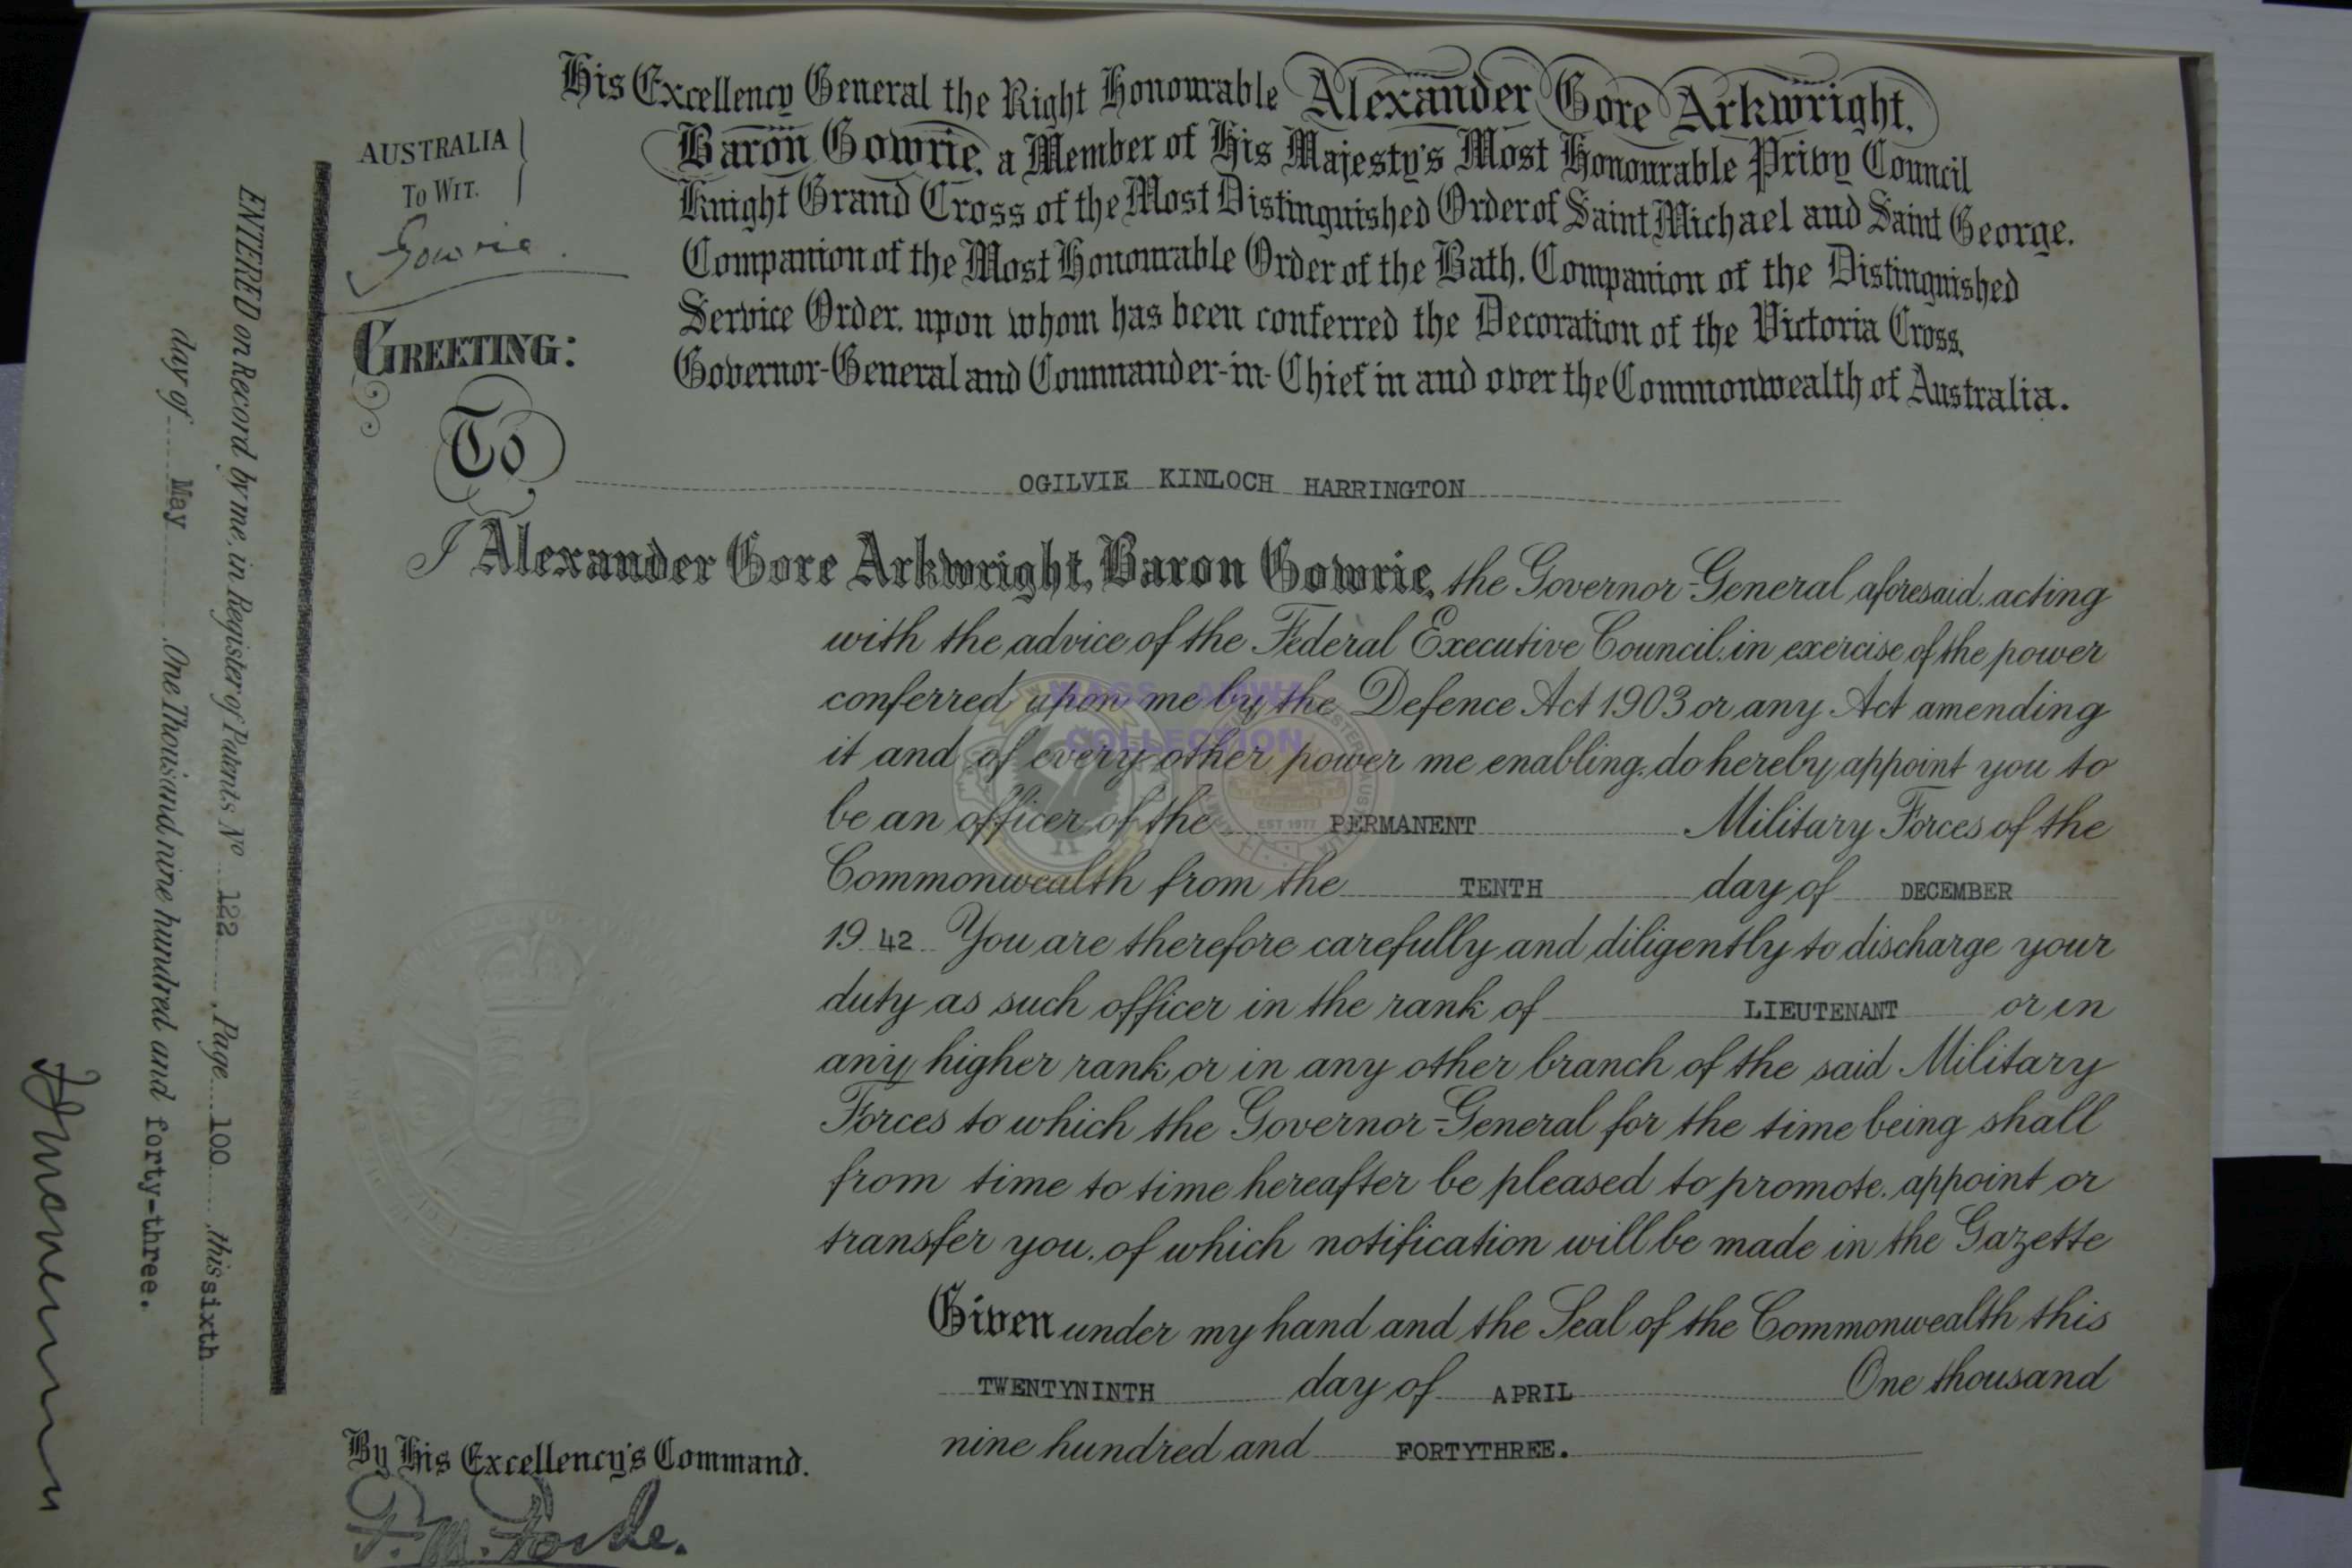 His Excellency General the Right Honourable Alexander Gore Arkwright,
Baron Gowrie, a Member of His Majesty's Most Honourable Privy Council
Knight Grand Cross of the Most Distinguished Order of Saint Michael and Saint George.
Companion of the Most Honourable Order of the Bath, Companion of the Distinguished
Service Order, upon whom has been conferred the Decoration of the Victoria Cross,
Governor-General and Commander-in-Chief in and over the Commonwealth of Australia.
AUSTRALIA
TO WIT.
Gowrie.
GREETING:
To
OGILVIE KINLOCH HARRINGTON
I Alexander Gore Arkwright, Baron Gowrie, the Governor-General aforesaid, acting
with the advice of the Federal Executive Council, in exercise of the power
conferred upon me by the Defence Act 1903 or any Act amending
it and of every other power me enabling, do hereby appoint you to
be an officer of the PERMANENT Military Forces of the
Commonwealth from the TENTH day of DECEMBER
19 42 You are therefore carefully and diligently to discharge your
duty as such officer in the rank of LIEUTENANT or in
any higher rank or in any other branch of the said Military
Forces to which the Governor-General for the time being shall
from time to time hereafter be pleased to promote, appoint or
transfer you, of which notification will be made in the Gazette
Given under my hand and the Seal of the Commonwealth this
TWENTYNINTH day of APRIL One thousand
nine hundred and FORTYTHREE.
By His Excellency's Command.
ENTERED on Record by me, in Register of Patents No 122, Page 100, this sixth
day of May One Thousand nine hundred and forty-three.
WAGS AMWA
COLLECTION
EST 1977